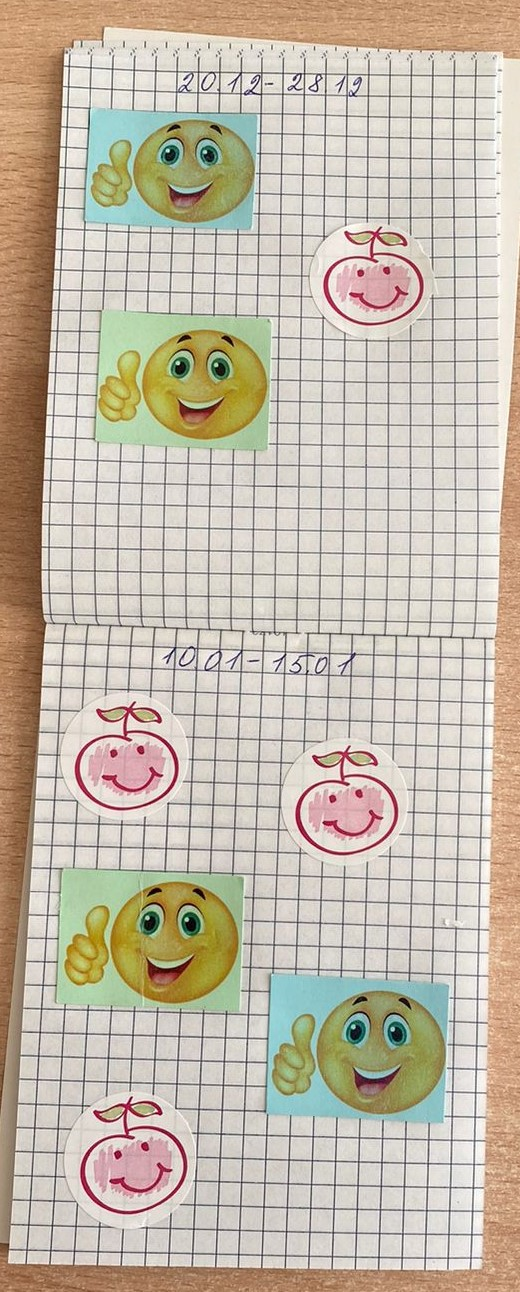 20.12-28.12
10.01-15.01